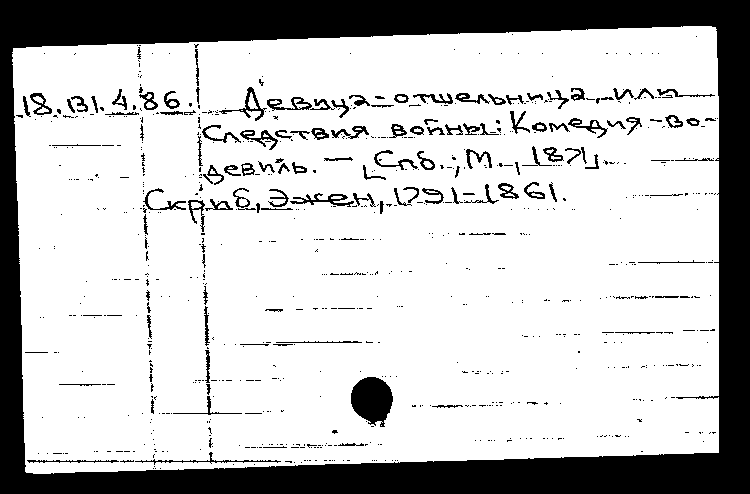 18.131.4.86. Девица-отшельница, или
Следствия войны: Комедия-во-
девиль. — [Спб.; М., 1871].
Скриб, Эжен, 1791-1861.